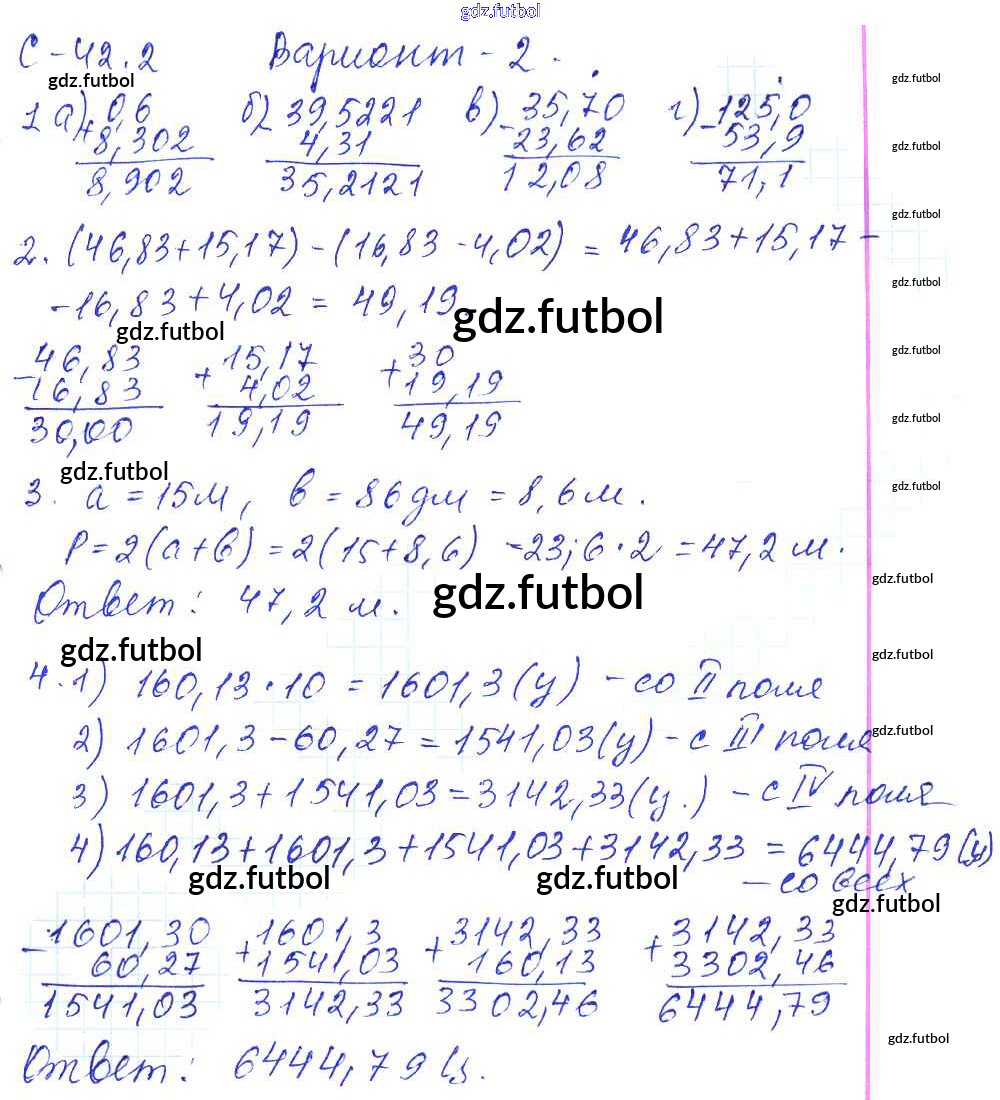 gdz.futbol
С-42.2 Вариант-2.
gdz.futbol gdz.futbol
1 а) 0,6 б) 39,5221 в) 35,70 г) 125,0
+8,302 4,31 -23,62 -53,9
8,902 35,2121 12,08 71,1
gdz.futbol
gdz.futbol
2. (46,83+15,17)-(16,83-4,02) = 46,83+15,17-
gdz.futbol
-16,83+4,02 = 49,19.
gdz.futbol gdz.futbol
46,83 15,17 30 gdz.futbol
-16,83 +4,02 +19,19
30,00 19,19 49,19 gdz.futbol
gdz.futbol gdz.futbol
3. a = 15м, в = 86дм = 8,6м.
P=2(a+в) = 2(15+8,6) -23,6·2 = 47,2 м.
Ответ: 47,2 м. gdz.futbol gdz.futbol
gdz.futbol gdz.futbol
4.1) 160,13·10 = 1601,3(ц) - со II поля
2) 1601,3-60,27 = 1541,03(ц) - с III поля gdz.futbol
3) 1601,3+1541,03=3142,33(ц.) - с IV поля
4) 160,13+1601,3+1541,03+3142,33 = 6444,79(ц)
gdz.futbol gdz.futbol - со всех
gdz.futbol
1601,30 1601,3 3142,33 3142,33
-60,27 +1541,03 +160,13 +3302,46
1541,03 3142,33 3302,46 6444,79
gdz.futbol
Ответ: 6444,79 ц.